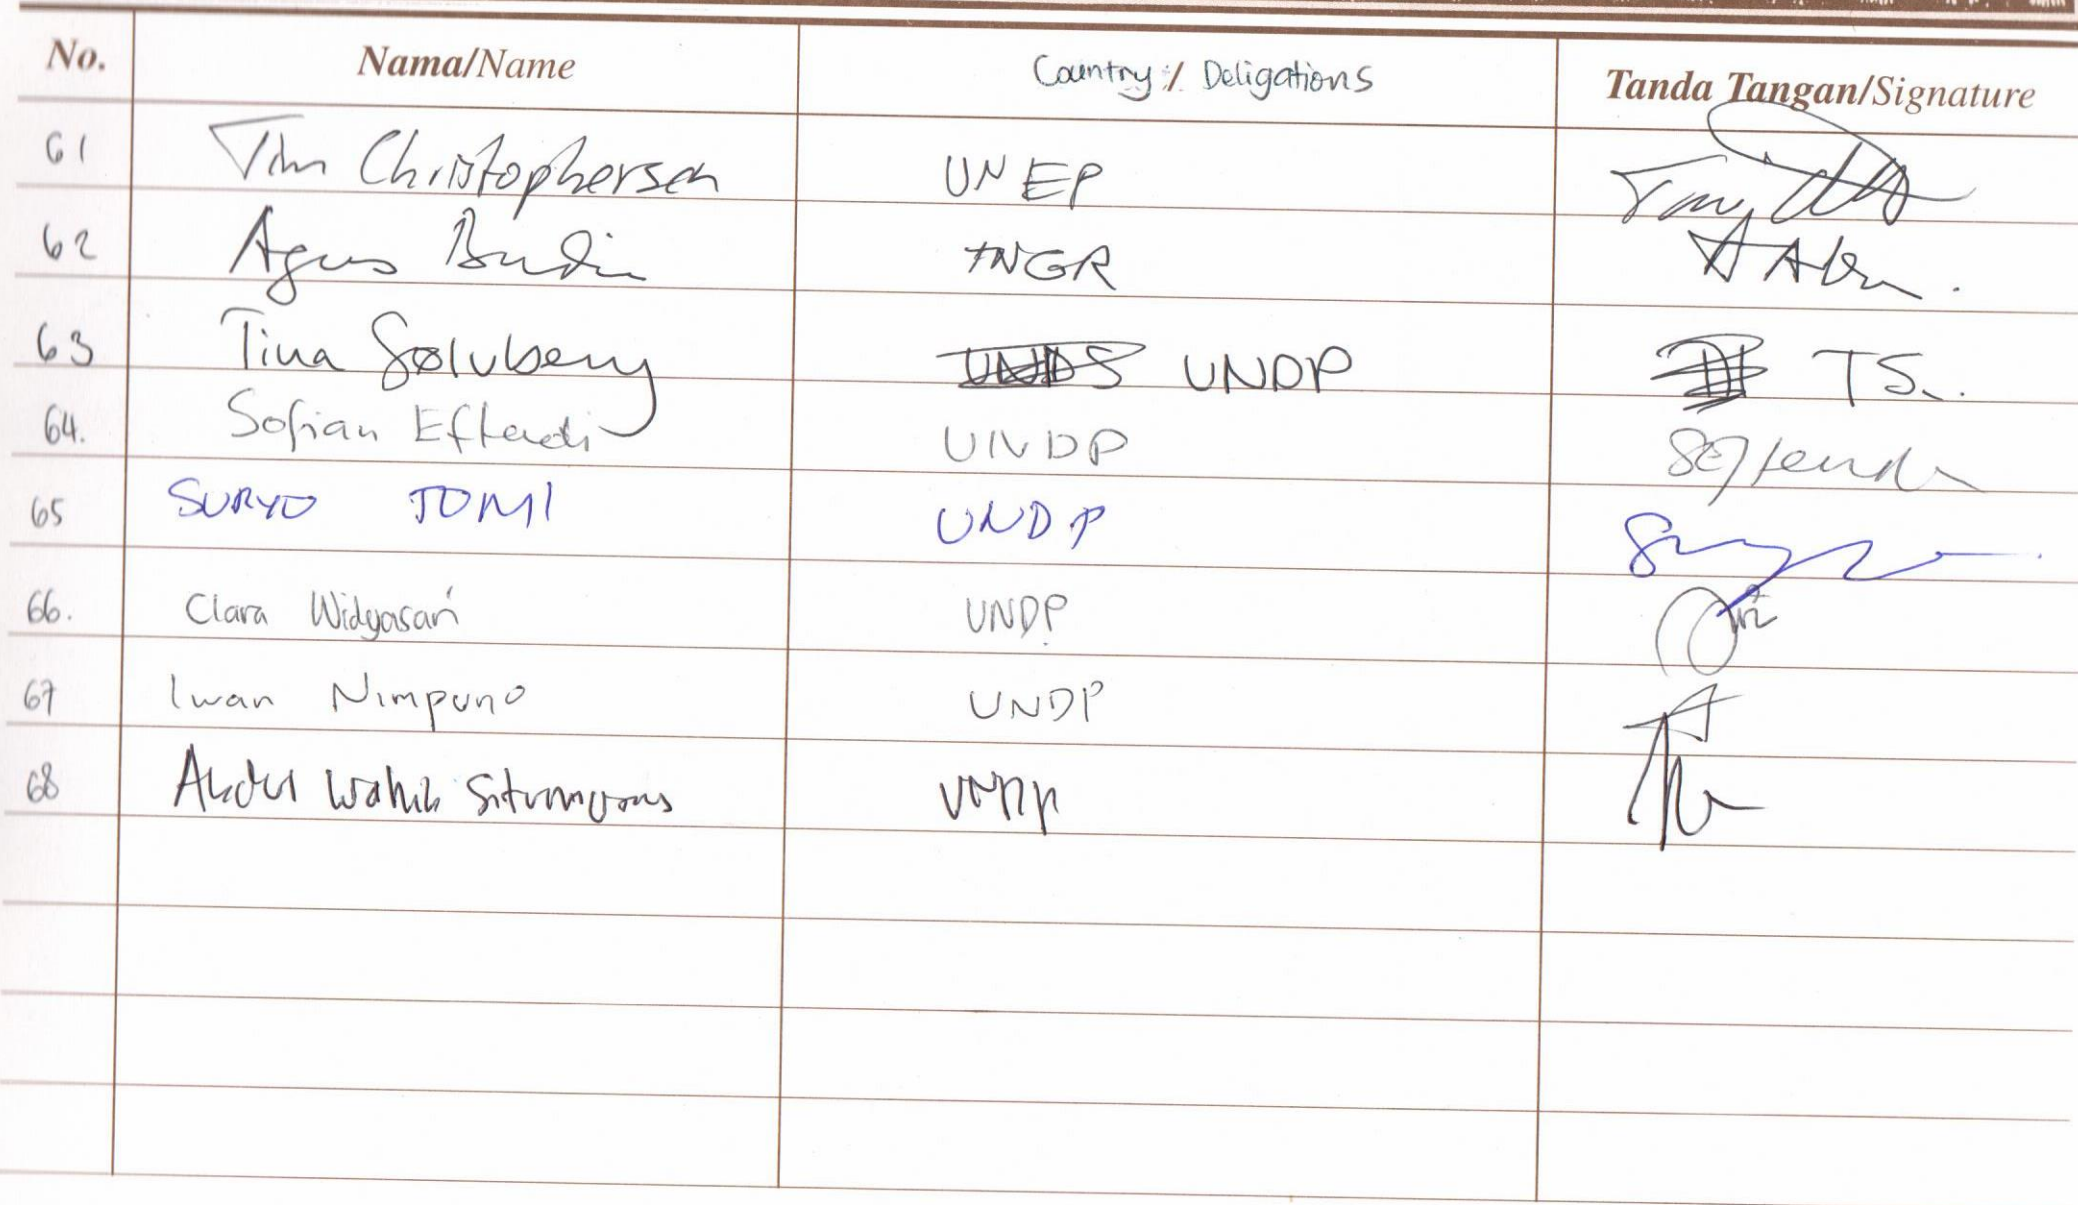 No. Nama/Name Country / Deligations Tanda Tangan/Signature
61 Tim Christophersen UNEP
62 Agus Budi TNGR
63 Tina Sølvberg UNDP TS.
64. Sofian Effendi UNDP
65 SURYO TOMI UNDP
66. Clara Widyasari UNDP
67 Iwan Nimpuno UNDP
68 Abdul Wahib Situmorang UNDP